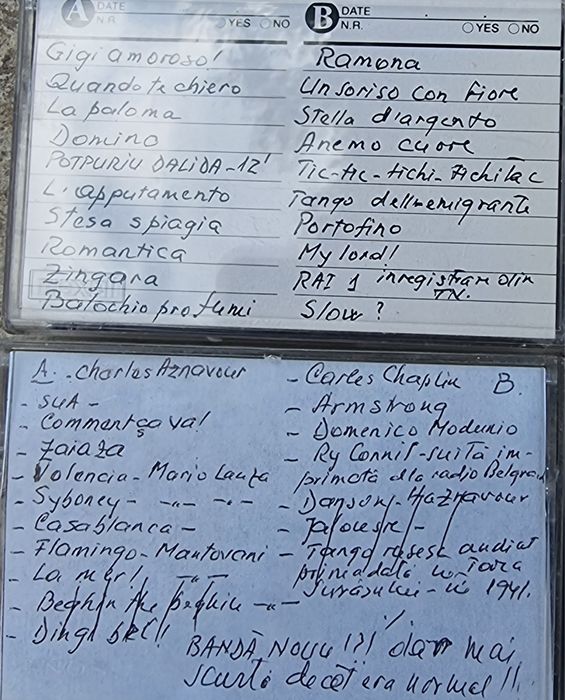 A DATE
N.R. YES NO
Gigi amoroso!
Quando te chiero
La paloma
Domino
POTPURIU DALIDA-12'
L'apputamento
Stesa spiagia
Romantica
Zingara
Balochio profumi
B DATE
N.R. YES NO
Ramona
Un soriso con fiore
Stella d'argento
Anemo cuore
Tic-tic-tichi-tichitac
Tango dell-emigrante
Portofino
My lord!
RAI 1 inregistrare din
TV.
Slow ?
A. - Charles Aznavour
- SUA -
- Comment ça va!
- Zaiaza
- Valencia - Mario Lanza
- Syboney - -"- -"-
- Casablanca -
- Flamingo - Mantovani
- La mer! -"-
- Beghin the beghin -"-
- Dingl bel!!
- Carles Chaplin B.
- Armstrong
- Domenico Modunio
- Ry Connif - suită im-
primată dela radio Belgrad
- Dansons - Haznavour
- Jalousie -
- Tango rusesc audiat
prima dată în Țara
- în 1941.
BANDĂ NOUĂ !?! dar mai
scurtă decât era normal !!